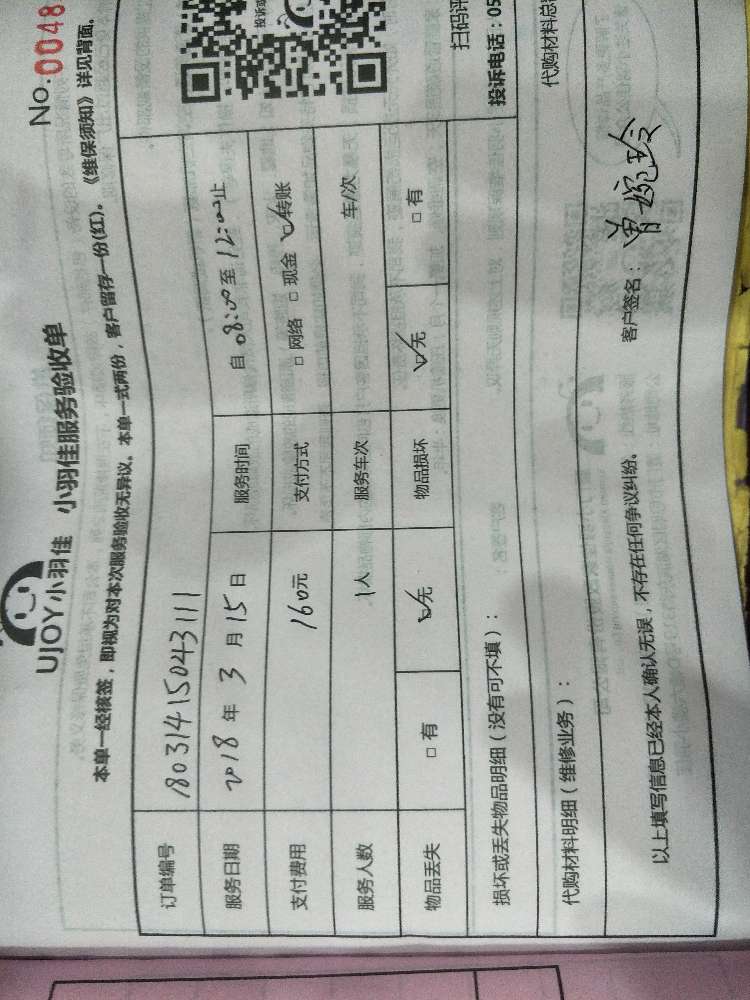 No:0048
UJOY小羽佳 小羽佳服务验收单
本单一经核签，即视为对本次服务验收无异议。本单一式两份，客户留存一份(红)。《维保须知》详见背面。
订单编号 18031415043111
服务日期 2018 年 3 月 15 日 服务时间 自 08:00 至 12:00 止
支付费用 160元 支付方式 □ 网络 □ 现金 ☑ 转账
服务人数 1人 服务车次 车/次
物品丢失 □ 有 ☑ 无 物品损坏 ☑ 无 □ 有
扫码评
损坏或丢失物品明细（没有可不填）：
投诉电话：05
代购材料明细（维修业务）：
代购材料总
以上填写信息已经本人确认无误，不存在任何争议纠纷。 客户签名： 曾婉玲